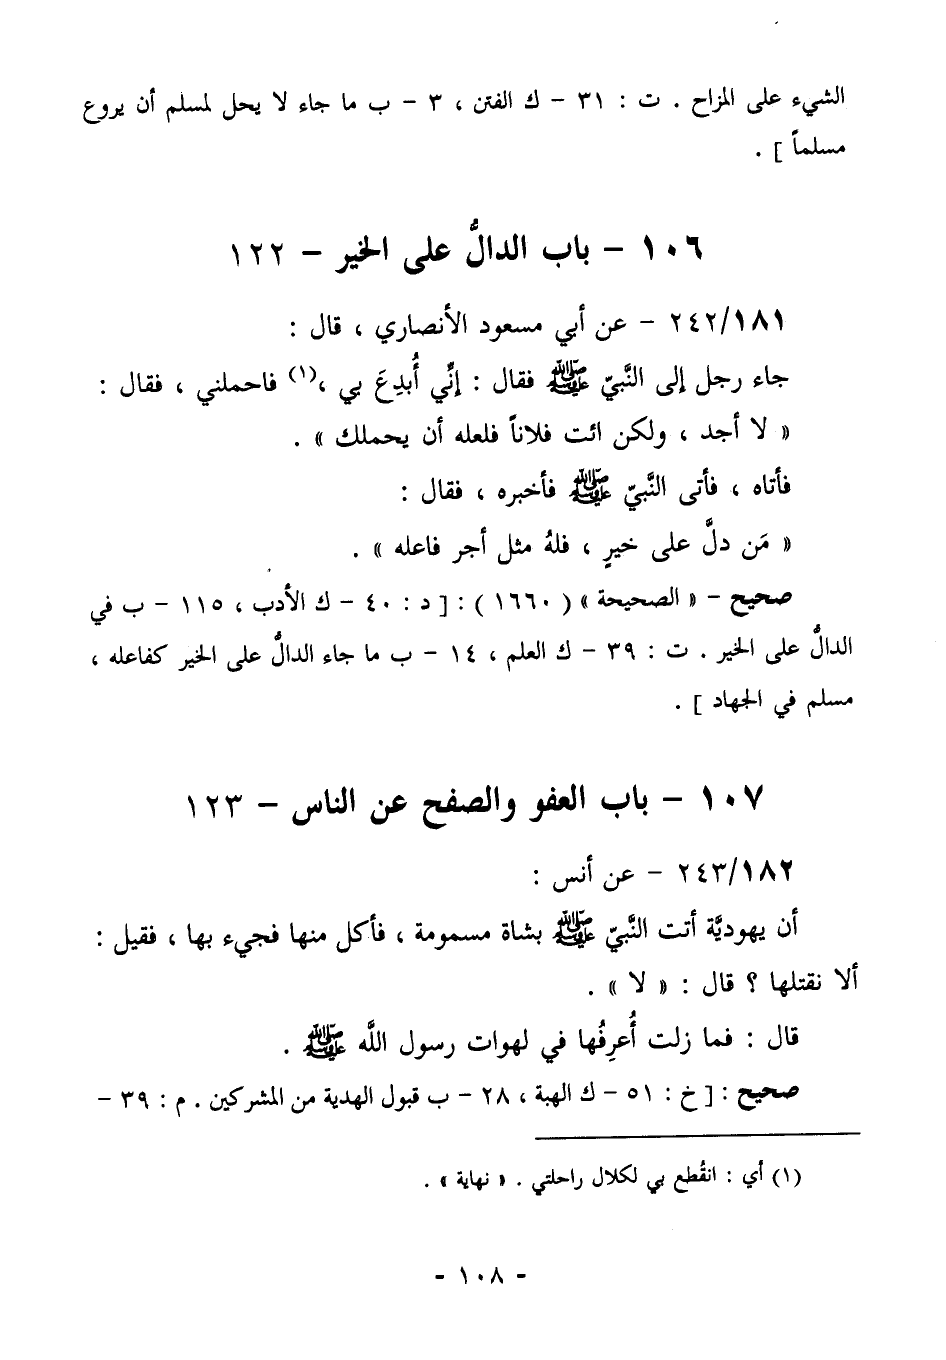 الشيء على المزاح . ت : ٣١ – ك الفتن ، ٣ – ب ما جاء لا يحل لمسلم أن يروع
مسلماً ] .
١٠٦ – باب الدالُّ على الخير – ١٢٢
٢٤٢/١٨١ – عن أبي مسعود الأنصاري ، قال :
جاء رجل إلى النَّبيّ ﷺ فقال : إنِّي أُبدِعَ بي ،(١) فاحملني ، فقال :
« لا أجد ، ولكن ائت فلاناً فلعله أن يحملك » .
فأتاه ، فأتى النَّبيّ ﷺ فأخبره ، فقال :
« مَن دلَّ على خيرٍ ، فلهُ مثل أجر فاعله » .
صحيح – « الصحيحة » ( ١٦٦٠ ) : [ د : ٤٠ – ك الأدب ، ١١٥ – ب في
الدالُّ على الخير . ت : ٣٩ – ك العلم ، ١٤ – ب ما جاء الدالُّ على الخير كفاعله ،
مسلم في الجهاد ] .
١٠٧ – باب العفو والصفح عن الناس – ١٢٣
٢٤٣/١٨٢ – عن أنس :
أن يهوديَّة أتت النَّبيّ ﷺ بشاة مسمومة ، فأكل منها فجيء بها ، فقيل :
ألا نقتلها ؟ قال : « لا » .
قال : فما زلت أُعرِفُها في لهوات رسول اللَّه ﷺ .
صحيح : [ خ : ٥١ – ك الهبة ، ٢٨ – ب قبول الهدية من المشركين . م : ٣٩ –
(١) أي : انقُطع بي لكلال راحلتي . « نهاية » .
- ١٠٨ -